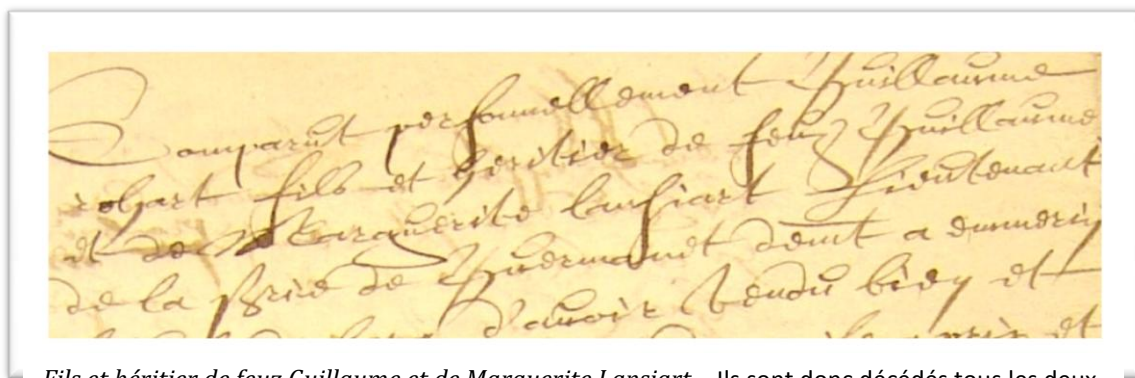 Comparut personnellement Guillaume
robart fils et heritier de feuz Guillaume
et de Marguerite lansiart lieutenant
de la sgrie de Guermanet demt a emmerin
d'avoir vendu bien et
et
Fils et héritier de feuz Guillaume et de Marguerite Lansiart. Ils sont donc décédés tous les deux